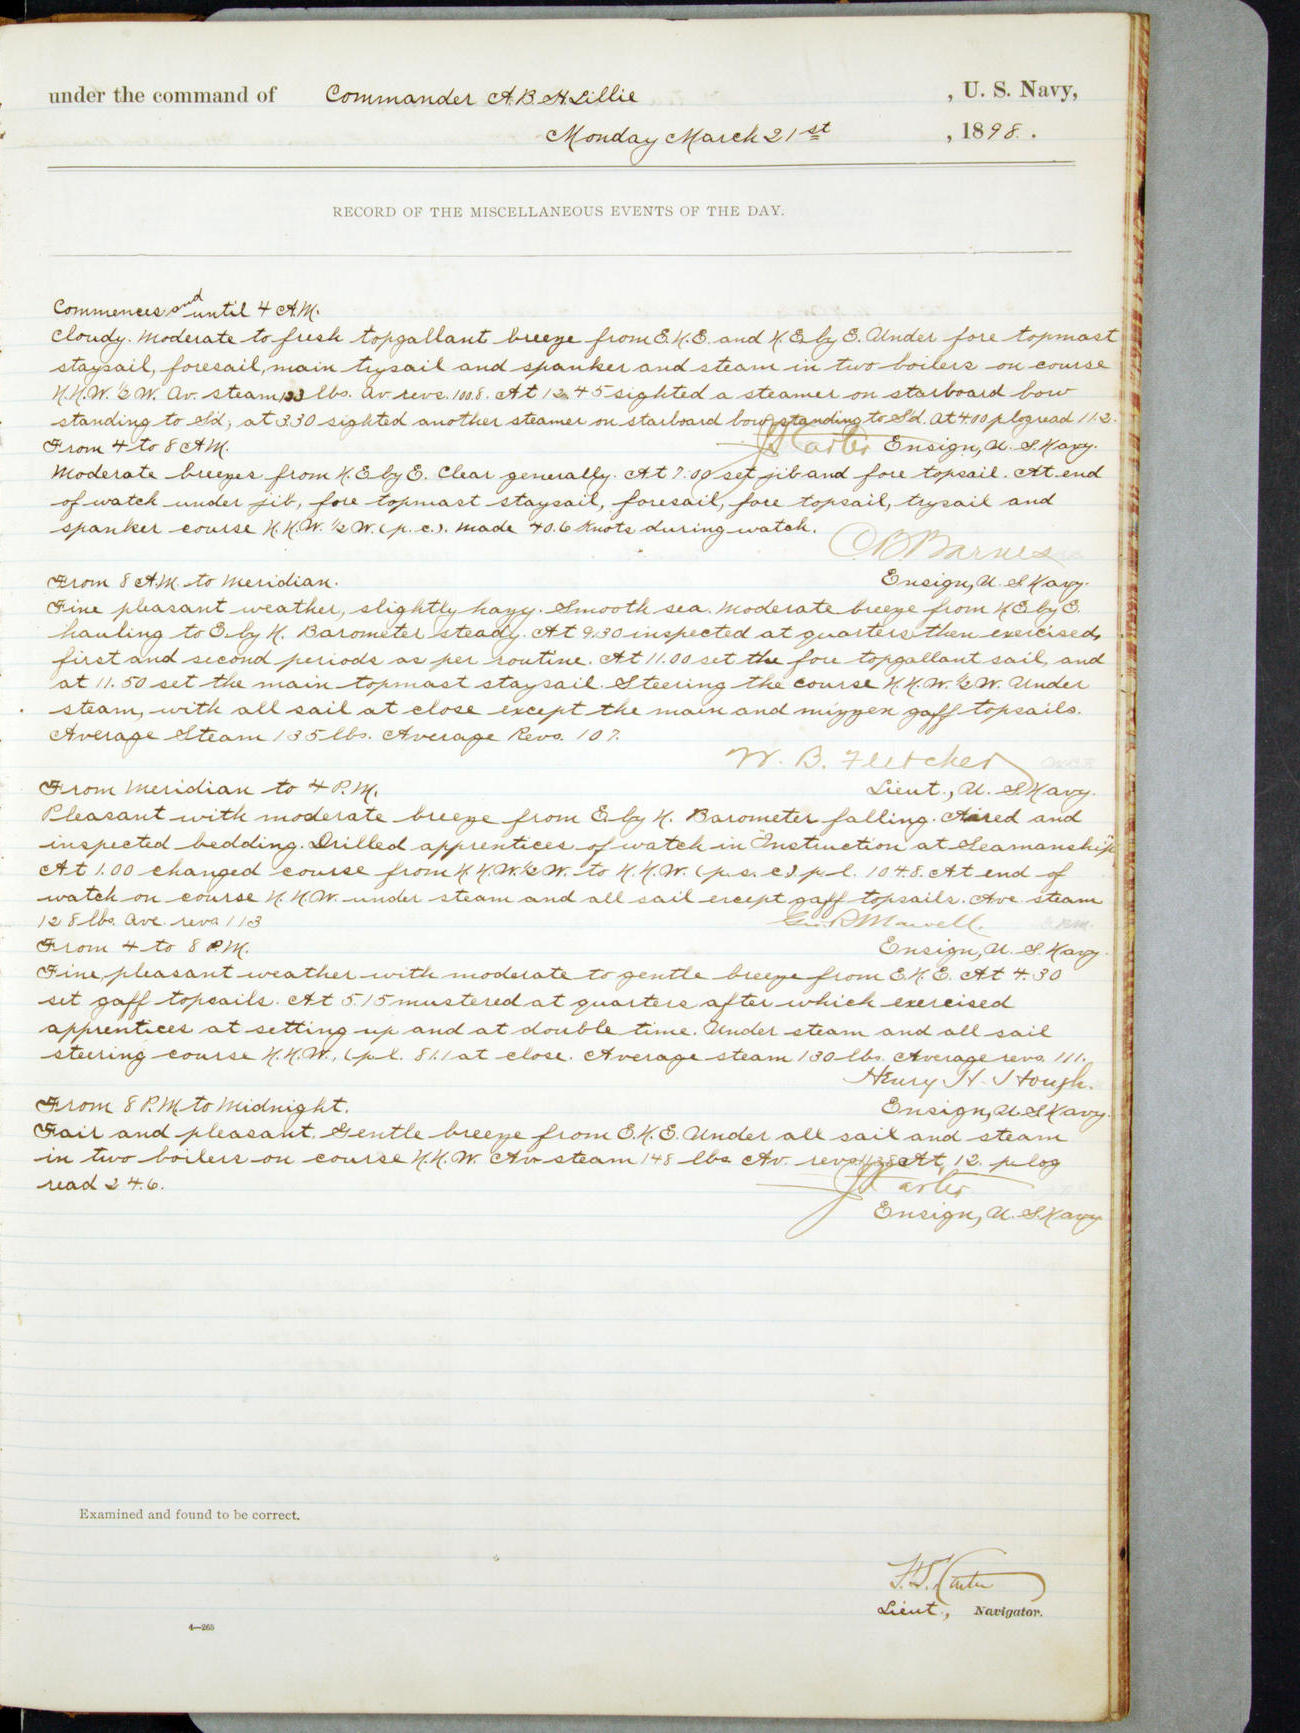 under the command of Commander A.B.H. Lillie , U. S. Navy,
Monday March 21st , 1898.
RECORD OF THE MISCELLANEOUS EVENTS OF THE DAY.
Commences and until 4 A.M.
Cloudy. Moderate to fresh topgallant breeze from E.N.E. and N.E. by E. Under fore topmast
staysail, foresail, main trysail and spanker and steam in two boilers on course
N.N.W. ½ W. Av. steam 133 lbs. av revs. 100.8. At 12.45 sighted a steamer on starboard bow
standing to S'd; at 3.30 sighted another steamer on starboard bow standing to S'd. At 4.00 p log read 11.2.
From 4 to 8 A.M. Carter Ensign, U. S. Navy.
Moderate breezes from N.E. by E. Clear generally. At 7.00 set jib and fore topsail. At end
of watch under jib, fore topmast staysail, foresail, fore topsail, trysail and
spanker course N.N.W. ½ W. (p. c.). Made 40.6 knots during watch.
CB Barnes
From 8 A.M. to Meridian. Ensign, U. S. Navy.
Fine pleasant weather, slightly hazy. Smooth sea. Moderate breeze from N.E. by E.
hauling to E. by N. Barometer steady. At 9.30 inspected at quarters then exercised,
first and second periods as per routine. At 11.00 set the fore topgallant sail, and
at 11.50 set the main topmast staysail. Steering the course N.N.W. ½ W. Under
steam, with all sail at close except the main and mizzen gaff topsails.
Average Steam 135 lbs. Average Revs. 107.
W. B. Fletcher
From Meridian to 4 P.M. Lieut., U. S. Navy.
Pleasant with moderate breeze from E. by N. Barometer falling. Aired and
inspected bedding. Drilled apprentices of watch in "Instruction at Seamanship"
At 1.00 changed course from N.N.W. ½ W. to N.N.W. (p. s. c.) p. l. 104.8. At end of
watch on course N.N.W. under steam and all sail except gaff topsails. Ave steam
128 lbs. Ave. revs 113 Geo. R Marvell.
From 4 to 8 P.M. Ensign, U. S. Navy.
Fine, pleasant weather with moderate to gentle breeze from E.N.E. At 4.30
set gaff topsails. At 5.15 mustered at quarters after which exercised
apprentices at setting up and at double time. Under steam and all sail
steering course N.N.W., (p. l. 81.1 at close. Average steam 130 lbs. Average revs. 111.
Henry H. Hough.
From 8 P.M. to Midnight. Ensign, U. S. Navy.
Fair and pleasant. Gentle breeze from E.N.E. Under all sail and steam
in two boilers on course N.N.W. Av. steam 148 lbs Av. revs At 12. p log
read 24.6. Carter
Ensign, U. S. Navy
Examined and found to be correct.
Carter
Lieut., Navigator.
4—265